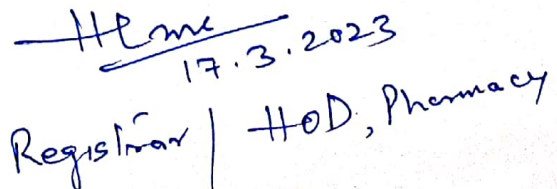 17.3.2023
Registrar | HOD, Pharmacy